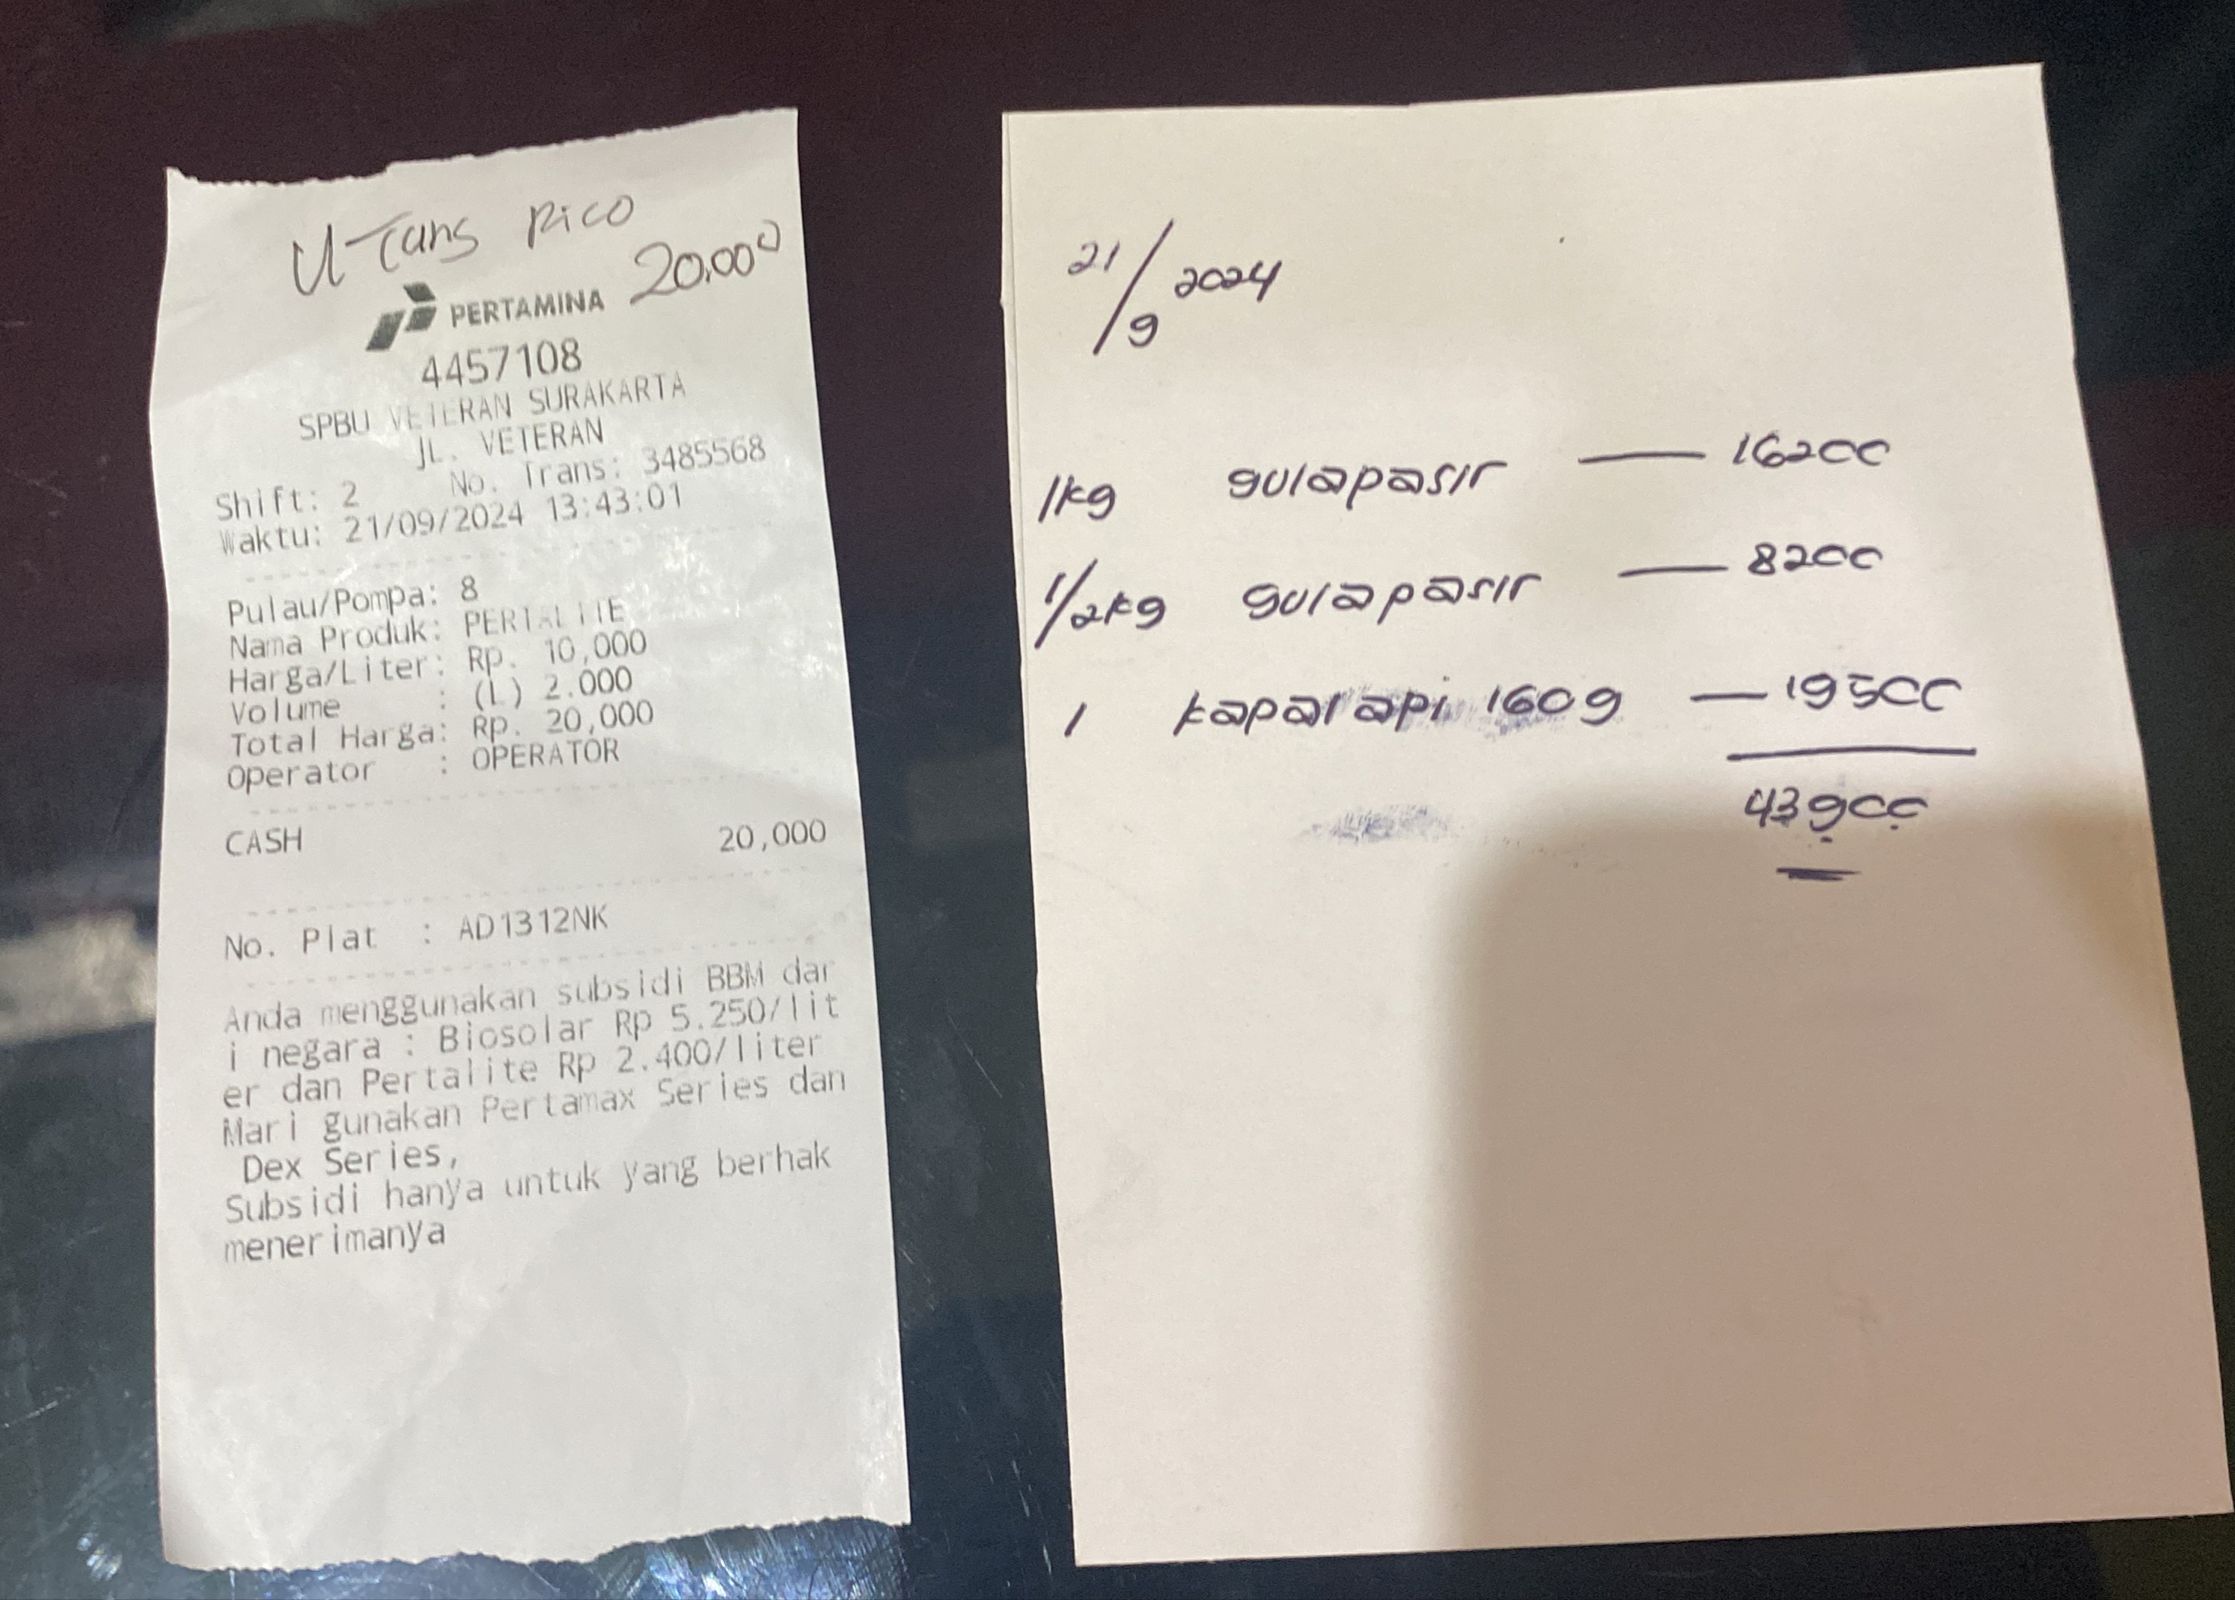 Utang Rico
20.000
PERTAMINA
4457108
SPBU VETERAN SURAKARTA
JL. VETERAN
Shift: 2 No. Trans: 3485568
Waktu: 21/09/2024 13:43:01
Pulau/Pompa: 8
Nama Produk: PERTALITE
Harga/Liter: Rp. 10,000
Volume : (L) 2.000
Total Harga: Rp. 20,000
Operator : OPERATOR
CASH 20,000
No. Plat : AD1312NK
Anda menggunakan subsidi BBM dar
i negara : Biosolar Rp 5.250/lit
er dan Pertalite Rp 2.400/liter
Mari gunakan Pertamax Series dan
Dex Series,
Subsidi hanya untuk yang berhak
menerimanya
21/9 2024
1kg gulapasir — 16200
1/2kg gulapasir — 8200
1 kapal api 160g — 19500
43900